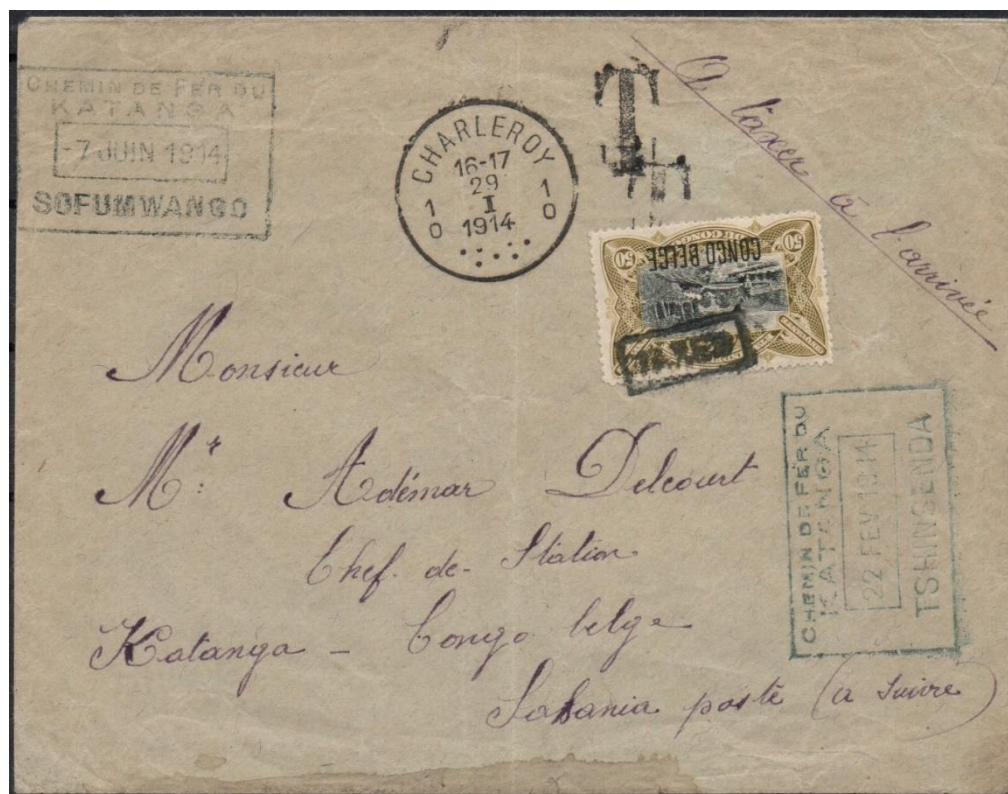 CHEMIN DE FER DU
KATANGA
-7 JUIN 1914
SOFUMWANGO
CHARLEROY
16-17
29
I
1914
10
10
T
A taxer à l'arrivée
50
50
CONGO BELGE
TAXES
Monsieur
Mr: Adémar Delcourt
Chef. de. Station.
Katanga - Congo belge
Sakania poste (a suivre)
CHEMIN DE FER DU
KATANGA
22 FEV 1914
TSHINSENDA